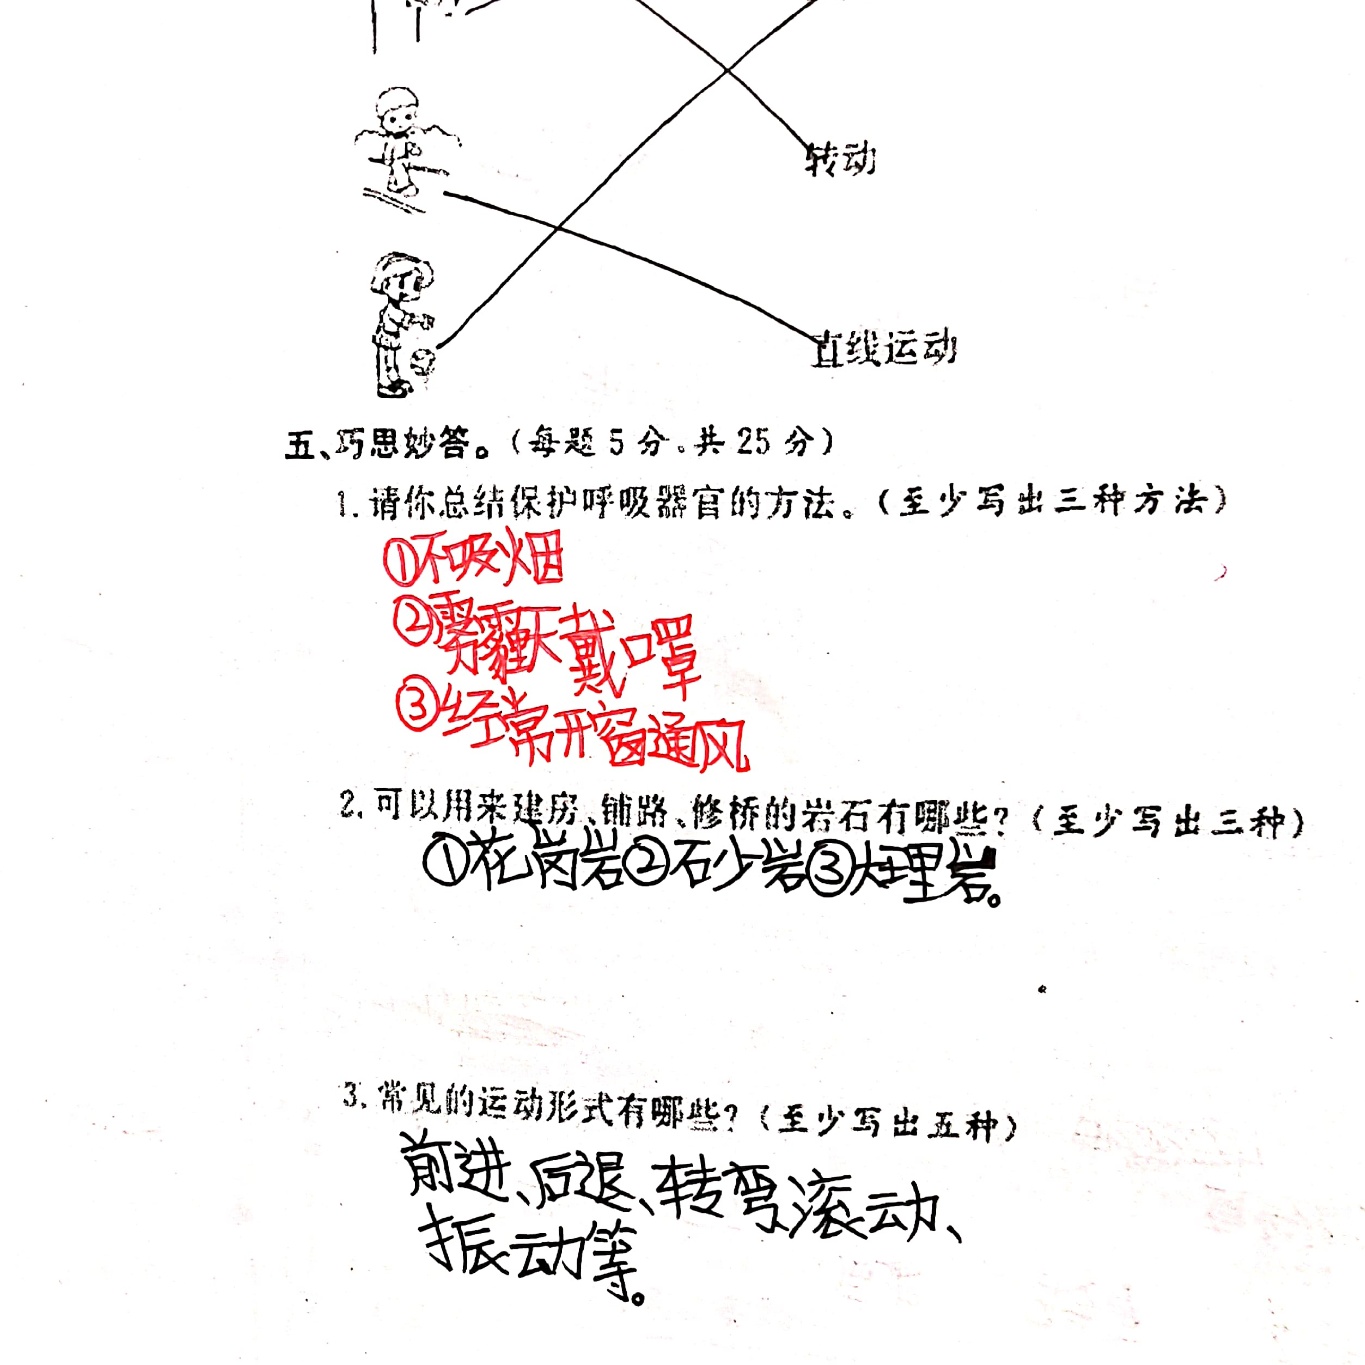 转动
直线运动
五、巧思妙答。(每题5分。共25分)
1.请你总结保护呼吸器官的方法。(至少写出三种方法)
①不吸烟
②雾霾天戴口罩
③经常开窗通风
2.可以用来建房、铺路、修桥的岩石有哪些?(至少写出三种)
①花岗岩②石少岩③大理岩。
3.常见的运动形式有哪些?(至少写出五种)
前进、后退、转弯、滚动、
振动等。